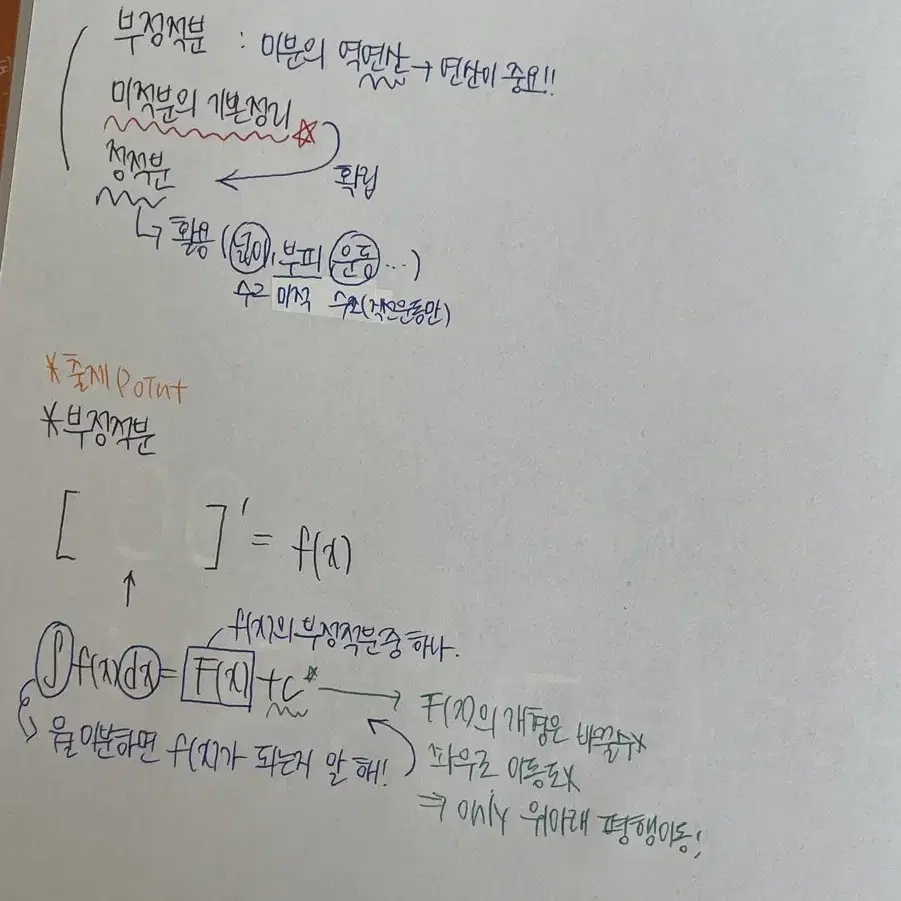 부정적분 : 미분의 역연산 → 연산이 중요!!
미적분의 기본정리 ☆
확립
정적분
↳ 활용 (넓이, 부피 운동 ...)
수2 미적 수2(직선운동만)
*출제 Point
*부정적분
[ ]' = f(x)
↑
f(x)의 부정적분중 하나.
∫f(x)dx = F(x) + c
F(x)의 개형은 바꿀수X
뭘 미분하면 f(x)가 되는지 말 해!
좌우로 이동도X
⇒ only 위아래 평행이동!